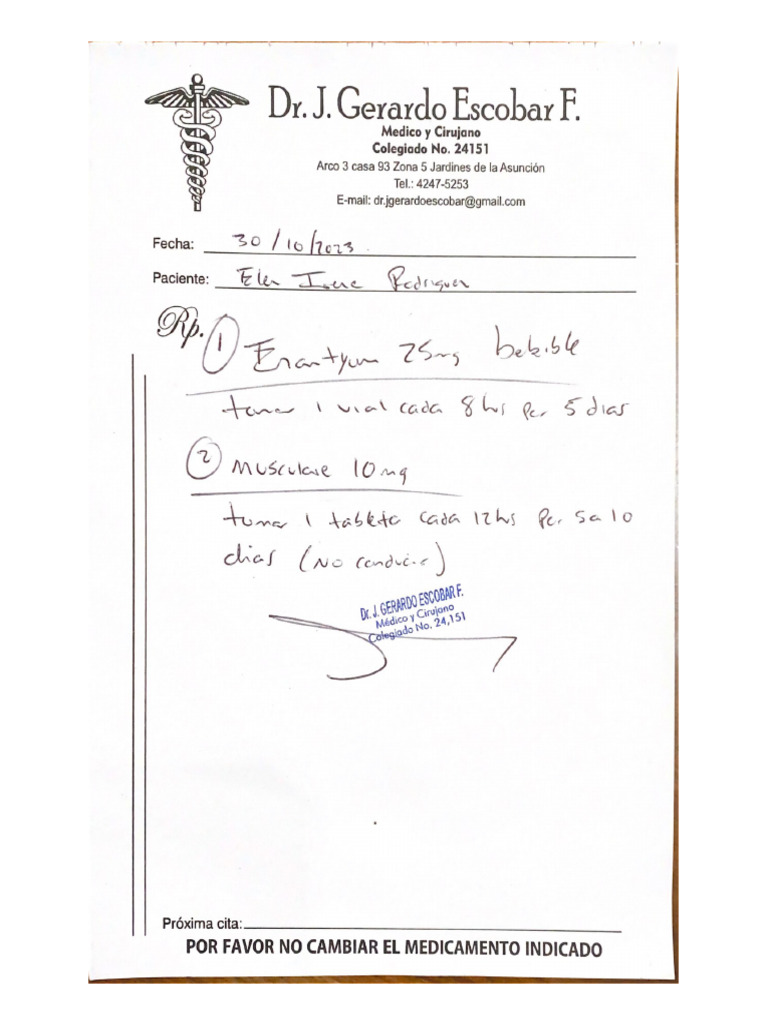 Dr. J. Gerardo Escobar F.
Medico y Cirujano
Colegiado No. 24151
Arco 3 casa 93 Zona 5 Jardines de la Asunción
Tel.: 4247-5253
E-mail: dr.jgerardoescobar@gmail.com
Fecha: 30/10/2023.
Paciente: Irene Rodriguez
Rp. 1 Enantyum 25mg bebible
tomar 1 vial cada 8 hrs por 5 dias
2 Musculare 10mg
tomar 1 tableta cada 12hrs por 5 a 10
dias (No conducir)
Dr. J. GERARDO ESCOBAR F.
Médico y Cirujano
Colegiado No. 24,151
Próxima cita:
POR FAVOR NO CAMBIAR EL MEDICAMENTO INDICADO